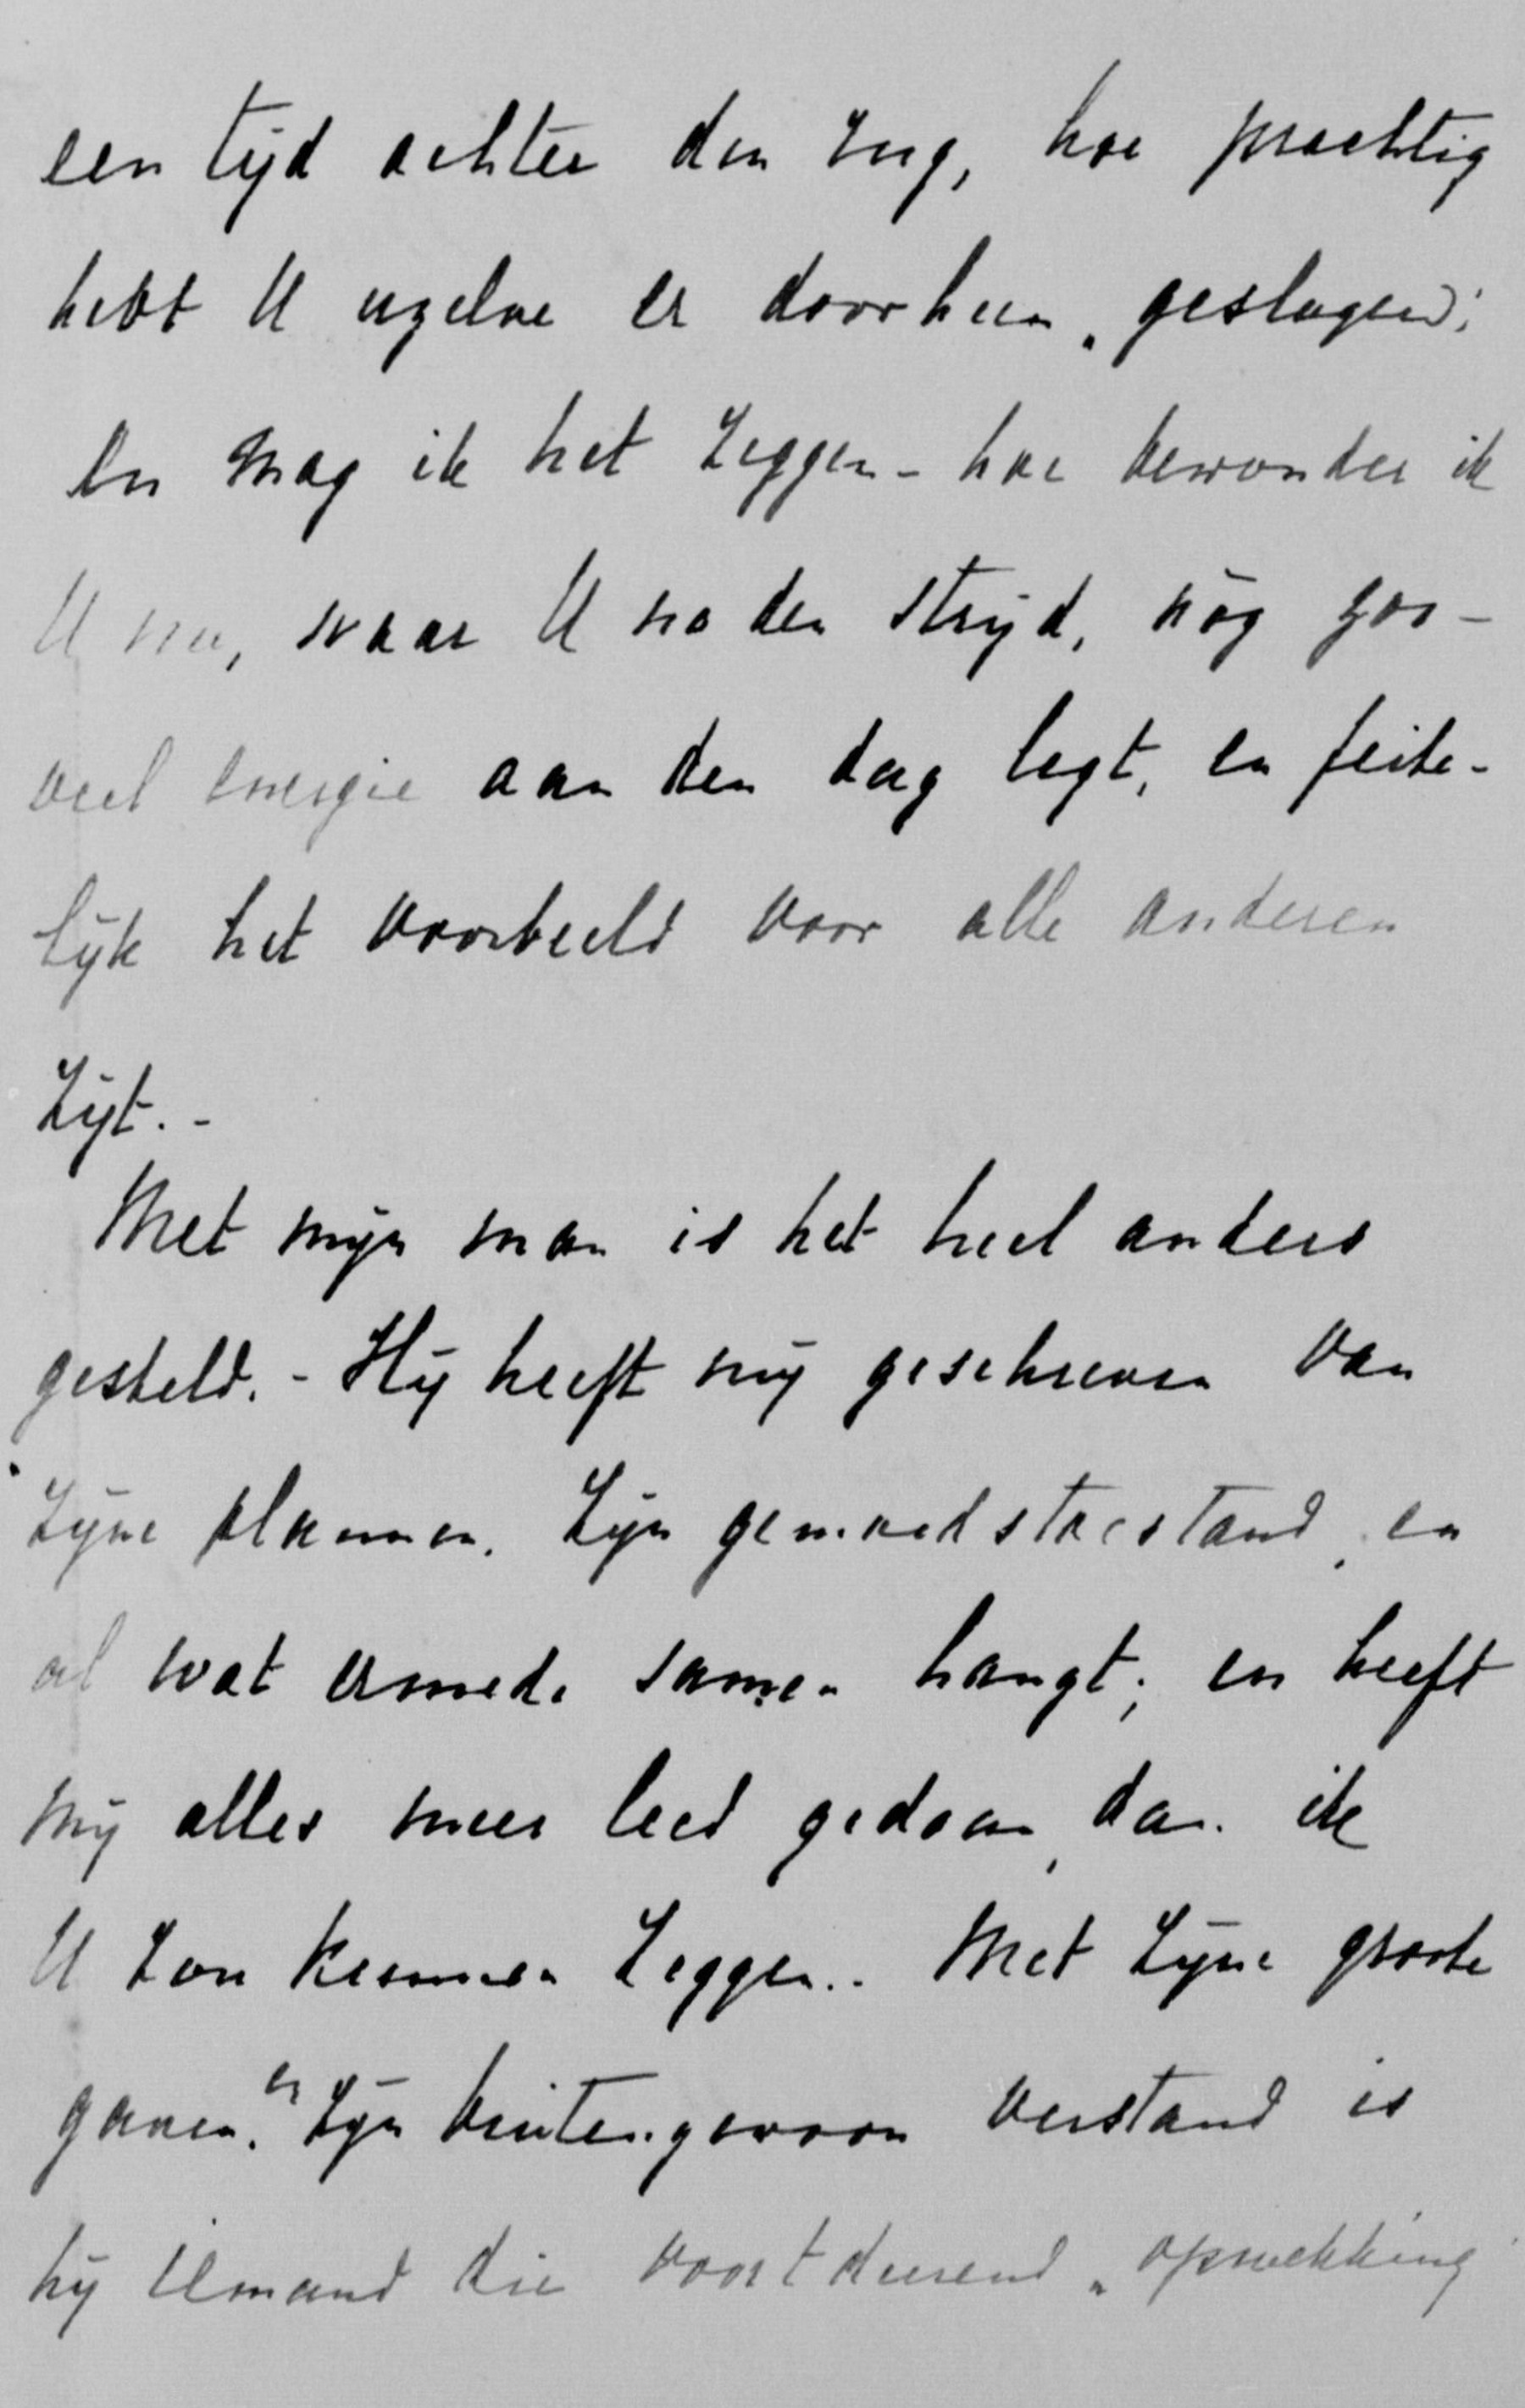 een tijd achter den rug, hoe prachtig
hebt U uzelve er doorheen „geslagen";
En mag ik het zeggen - hoe bewonder ik
U nu, waar U na den strijd, nòg zoo-
veel energie aan den dag legt, en feite-
lijk het voorbeeld voor alle anderen
zijt. -
Met mijn man is het heel anders
gesteld. - Hij heeft mij geschreven van
zijne plannen, zijn gemoedstoestand, en
al wat ermede samen hangt; en heeft
mij alles meer leed gedaan, dan ik
U zou kunnen zeggen.. Met zijne groote
gaven, en zijn buitengewoon verstand is
hij iemand die voortdurend „opwekking"